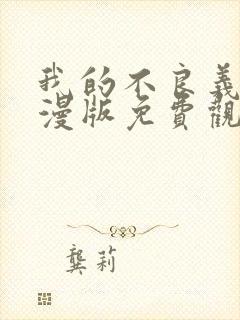 我的不良義
漫版免費觀
龔莉